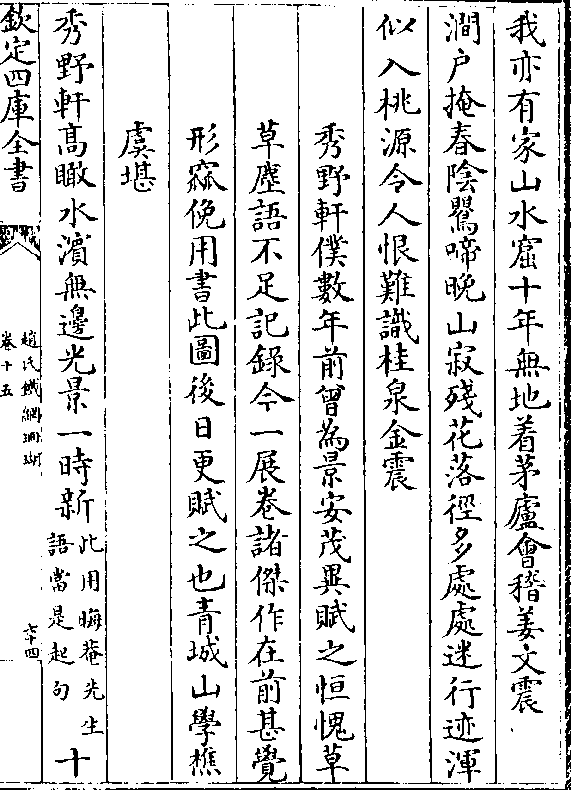 我亦有家山水窟十年無地着茅廬會稽姜文震
澗户掩春陰鸎啼晚山寂殘花落徑多處處迷行迹渾
似入桃源令人恨難識桂泉金震
秀野軒僕數年前曾為景安茂異賦之恒愧草
草塵語不足記録今一展卷諸傑作在前甚覺
形窳俛用書此圖後日更賦之也青城山學樵
虞堪
秀野軒高瞰水濵無邊光景一時新此用晦菴先生語當是起句十
欽定四庫全書
趙氏鐵網珊瑚
卷十五
六十四